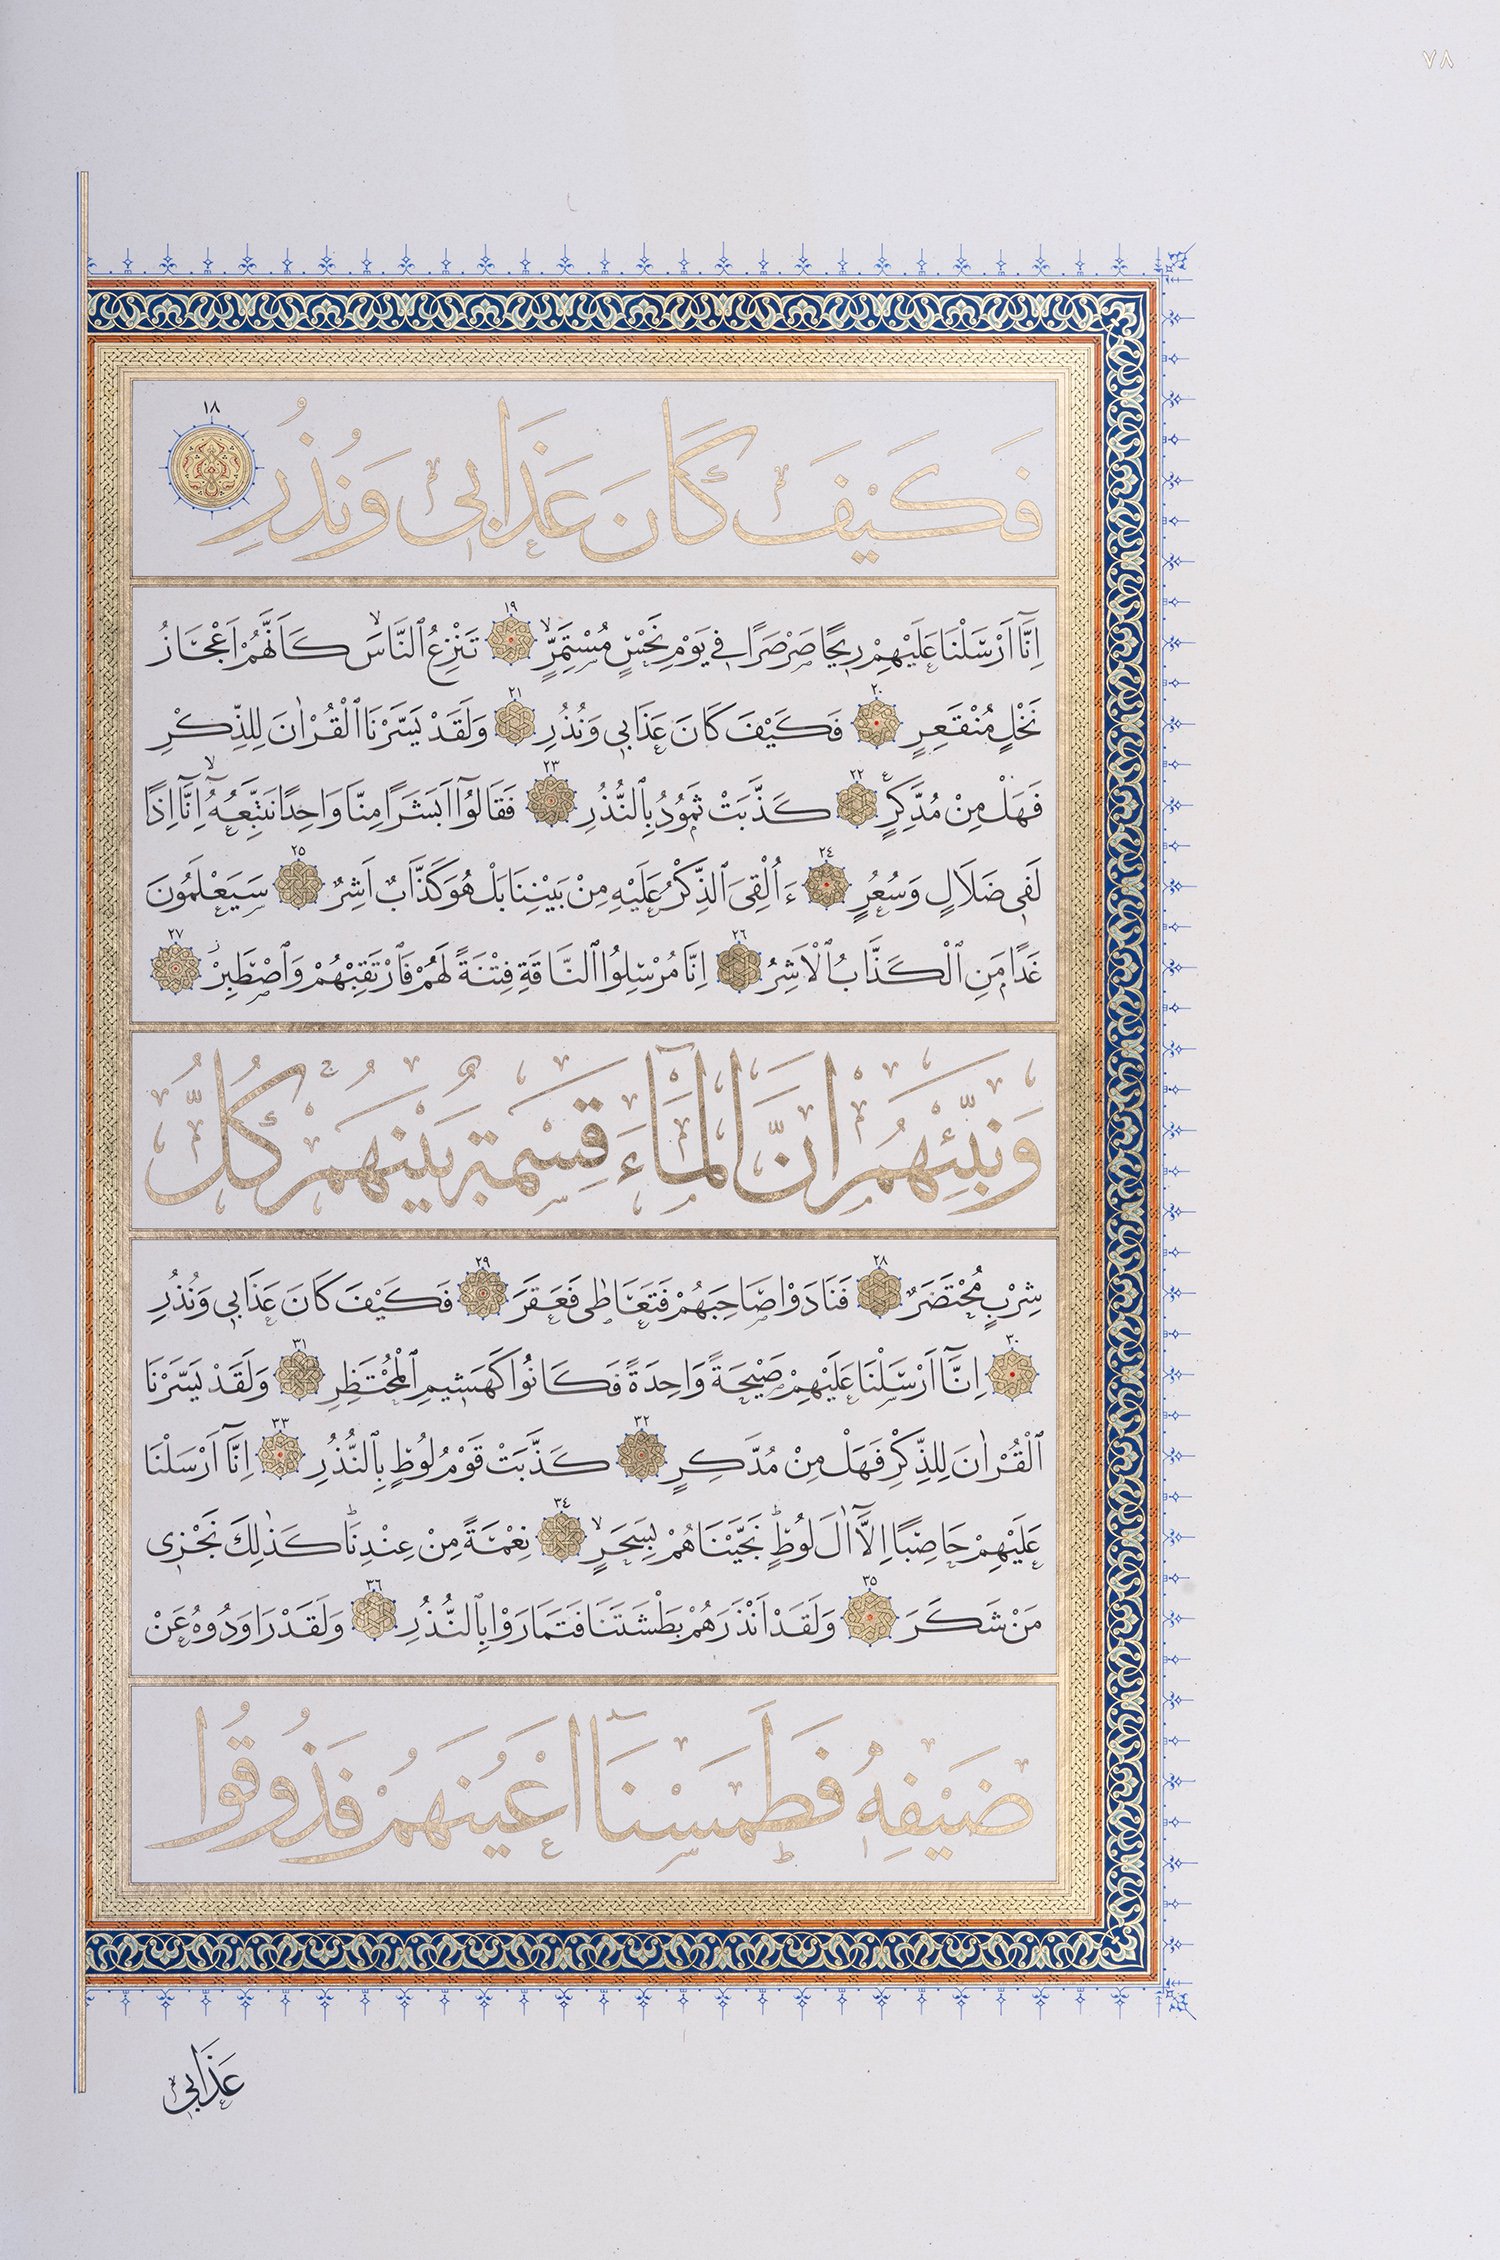 ٧٨
فَكَيْفَ كَانَ عَذَابِى وَنُذُرِ ١٨
اِنَّٓا اَرْسَلْنَا عَلَيْهِمْ رِيحًا صَرْصَرًا فِى يَوْمِ نَحْسٍ مُسْتَمِرٍّۙ ١٩ تَنْزِعُ ٱلنَّاسَۙ كَاَنَّهُمْ اَعْجَازُ
نَخْلٍ مُنْقَعِرٍ ٢٠ فَكَيْفَ كَانَ عَذَابِى وَنُذُرِ ٢١ وَلَقَدْ يَسَّرْنَا ٱلْقُرْاٰنَ لِلذِّكْرِ
فَهَلْ مِنْ مُدَّكِرٍ ٢٢ كَذَّبَتْ ثَمُودُ بِٱلنُّذُرِ ٢٣ فَقَالُوٓا اَبَشَرًا مِنَّا وَاحِدًا نَتَّبِعُهُٓۙ اِنَّٓا اِذًا
لَفِى ضَلَالٍ وَسُعُرٍ ٢٤ ءَاُلْقِىَ ٱلذِّكْرُ عَلَيْهِ مِنْ بَيْنِنَا بَلْ هُوَ كَذَّابٌ اَشِرٌ ٢٥ سَيَعْلَمُونَ
غَدًا مَنِ ٱلْكَذَّابُ ٱلْاَشِرُ ٢٦ اِنَّا مُرْسِلُوا ٱلنَّاقَةِ فِتْنَةً لَهُمْ فَٱرْتَقِبْهُمْ وَٱصْطَبِرْ ٢٧
وَنَبِّئْهُمْ اَنَّ الْمَٓاءَ قِسْمَةٌ بَيْنَهُمْۚ كُلُّ
شِرْبٍ مُحْتَضَرٌ ٢٨ فَنَادَوْا صَاحِبَهُمْ فَتَعَاطٰى فَعَقَرَ ٢٩ فَكَيْفَ كَانَ عَذَابِى وَنُذُرِ
٣٠ اِنَّٓا اَرْسَلْنَا عَلَيْهِمْ صَيْحَةً وَاحِدَةً فَكَانُوا كَهَشِيمِ ٱلْمُحْتَظِرِ ٣١ وَلَقَدْ يَسَّرْنَا
ٱلْقُرْاٰنَ لِلذِّكْرِ فَهَلْ مِنْ مُدَّكِرٍ ٣٢ كَذَّبَتْ قَوْمُ لُوطٍ بِٱلنُّذُرِ ٣٣ اِنَّٓا اَرْسَلْنَا
عَلَيْهِمْ حَاصِبًا اِلَّٓا اٰلَ لُوطٍؕ نَجَّيْنَاهُمْ بِسَحَرٍۙ ٣٤ نِعْمَةً مِنْ عِنْدِنَاؕ كَذٰلِكَ نَجْزِى
مَنْ شَكَرَ ٣٥ وَلَقَدْ اَنْذَرَهُمْ بَطْشَتَنَا فَتَمَارَوْا بِٱلنُّذُرِ ٣٦ وَلَقَدْ رَاوَدُوهُ عَنْ
ضَيْفِهِ فَطَمَسْنَٓا اَعْيُنَهُمْ فَذُوقُوا
عَذَابِى